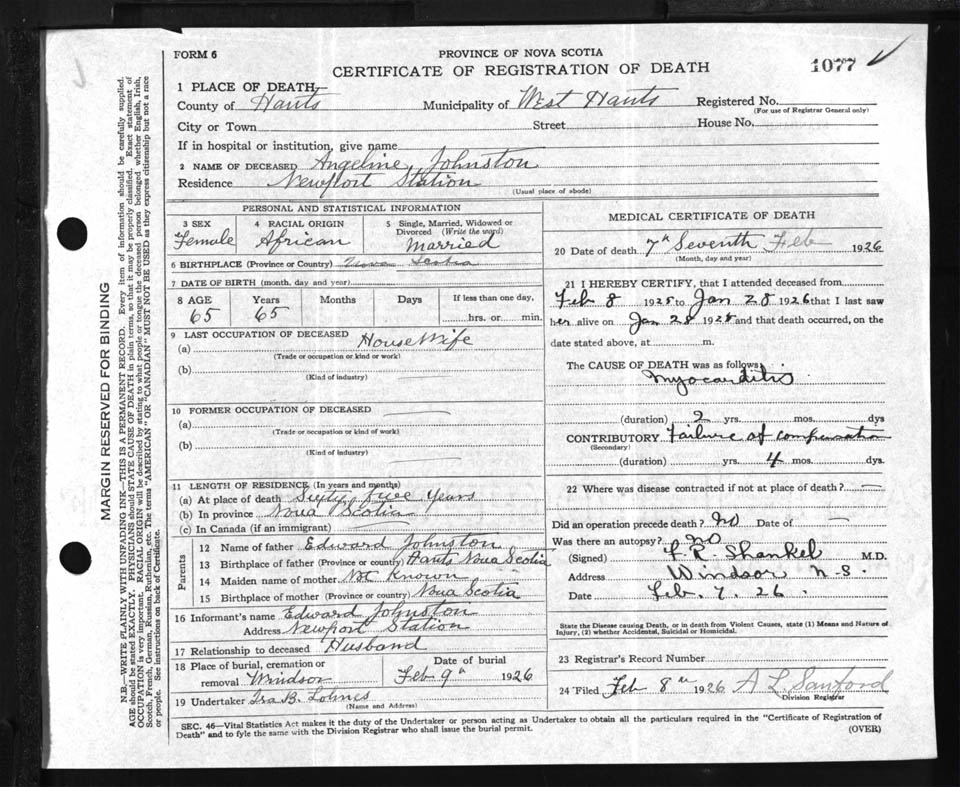 FORM 6
PROVINCE OF NOVA SCOTIA
CERTIFICATE OF REGISTRATION OF DEATH
1077
1 PLACE OF DEATH—
County of Hants Municipality of West Hants Registered No.
(For use of Registrar General only)
City or Town Street House No.
If in hospital or institution, give name
2 NAME OF DECEASED Angeline Johnston
Residence Newport Station
(Usual place of abode)
PERSONAL AND STATISTICAL INFORMATION
3 SEX 4 RACIAL ORIGIN 5 Single, Married, Widowed or Divorced (Write the word)
Female African Married
6 BIRTHPLACE (Province or Country) Nova Scotia
7 DATE OF BIRTH (month, day and year)
8 AGE Years Months Days If less than one day,
65 65 hrs. or min.
9 LAST OCCUPATION OF DECEASED
(a) House Wife
(Trade or occupation or kind or work)
(b)
(Kind of industry)
10 FORMER OCCUPATION OF DECEASED
(a)
(Trade or occupation or kind of work)
(b)
(Kind of industry)
11 LENGTH OF RESIDENCE (In years and months)
(a) At place of death Sixty five Years
(b) In province Nova Scotia
(c) In Canada (if an immigrant)
Parents
12 Name of father Edward Johnston
13 Birthplace of father (Province or country) Hants Nova Scotia
14 Maiden name of mother Not Known
15 Birthplace of mother (Province or country) Nova Scotia
16 Informant's name Edward Johnston
Address Newport Station
17 Relationship to deceased Husband
18 Place of burial, cremation or removal Windsor
Date of burial
Feb 9th 1926
19 Undertaker Ira B. Lohnes
(Name and Address)
MEDICAL CERTIFICATE OF DEATH
20 Date of death 7th Seventh Feb 1926
(Month, day and year)
21 I HEREBY CERTIFY, that I attended deceased from
Feb 8 1925 to Jan 28 1926 that I last saw
her alive on Jan 28 1925 and that death occurred, on the
date stated above, at m.
The CAUSE OF DEATH was as follows
Myocarditis
(duration) 2 yrs. mos. dys
CONTRIBUTORY Failure of compensation
(Secondary)
(duration) yrs. 4 mos. dys.
22 Where was disease contracted if not at place of death?
Did an operation precede death? No Date of —
Was there an autopsy? NO
(Signed) F. R. Shankel M.D.
Address Windsor N.S.
Date Feb. 7. 26.
State the Disease causing Death, or in death from Violent Causes, state (1) Means and Nature of
Injury, (2) whether Accidental, Suicidal or Homicidal.
23 Registrar's Record Number
24 Filed Feb 8th 1926 A L Sanford
Division Registrar
SEC. 46—Vital Statistics Act makes it the duty of the Undertaker or person acting as Undertaker to obtain all the particulars required in the "Certificate of Registration of
Death" and to fyle the same with the Division Registrar who shall issue the burial permit.
(OVER)
MARGIN RESERVED FOR BINDING
N.B.—WRITE PLAINLY WITH UNFADING INK—THIS IS A PERMANENT RECORD. Every item of information should be carefully supplied.
AGE should be stated EXACTLY. PHYSICIANS should STATE CAUSE OF DEATH in plain terms, so that it may be properly classified. Exact statement of
OCCUPATION is very important. RACIAL ORIGIN will be described by stating to what people or tongue the deceased person belonged whether English, Irish,
Scotch, French, German, Russian, Ruthenian, etc. The terms "AMERICAN" OR "CANADIAN" MUST NOT BE USED as they express citizenship but not a race
or people. See instructions on back of Certificate.